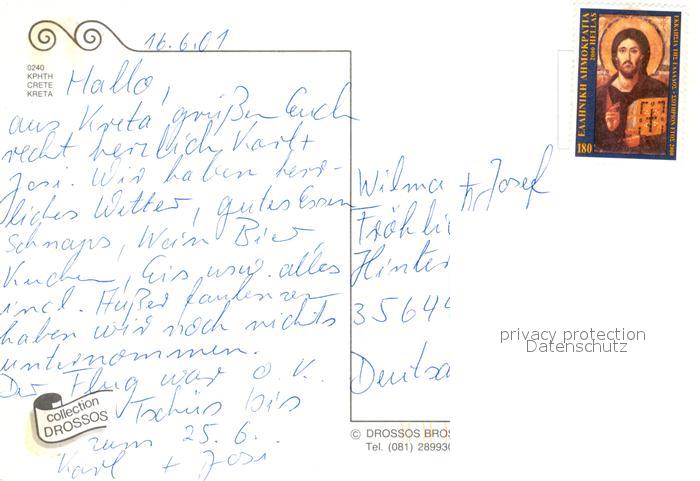 16.6.01
0240
ΚΡΗΤΗ
CRETE
KRETA
Hallo,
aus Kreta grüßen Euch
recht herzlich Karl +
Josi. Wir haben herr-
liches Wetter, gutes Essen
Schnaps, Wein Bier
Kuchen, Eis usw. alles
incl. Außer faulenzen
haben wir noch nichts
unternommen.
Der Flug war o.k.
Tschüs bis
zum 25.6.
Karl + Josi
collection
DROSSOS
ΕΛΛΗΝΙΚΗ ΔΗΜΟΚΡΑΤΙΑ
2000 HELLAS
180
Wilma + Josef
Fröhli
Hinter
3564
Deutsc
privacy protection
Datenschutz
© DROSSOS BROS
Tel. (081) 289930